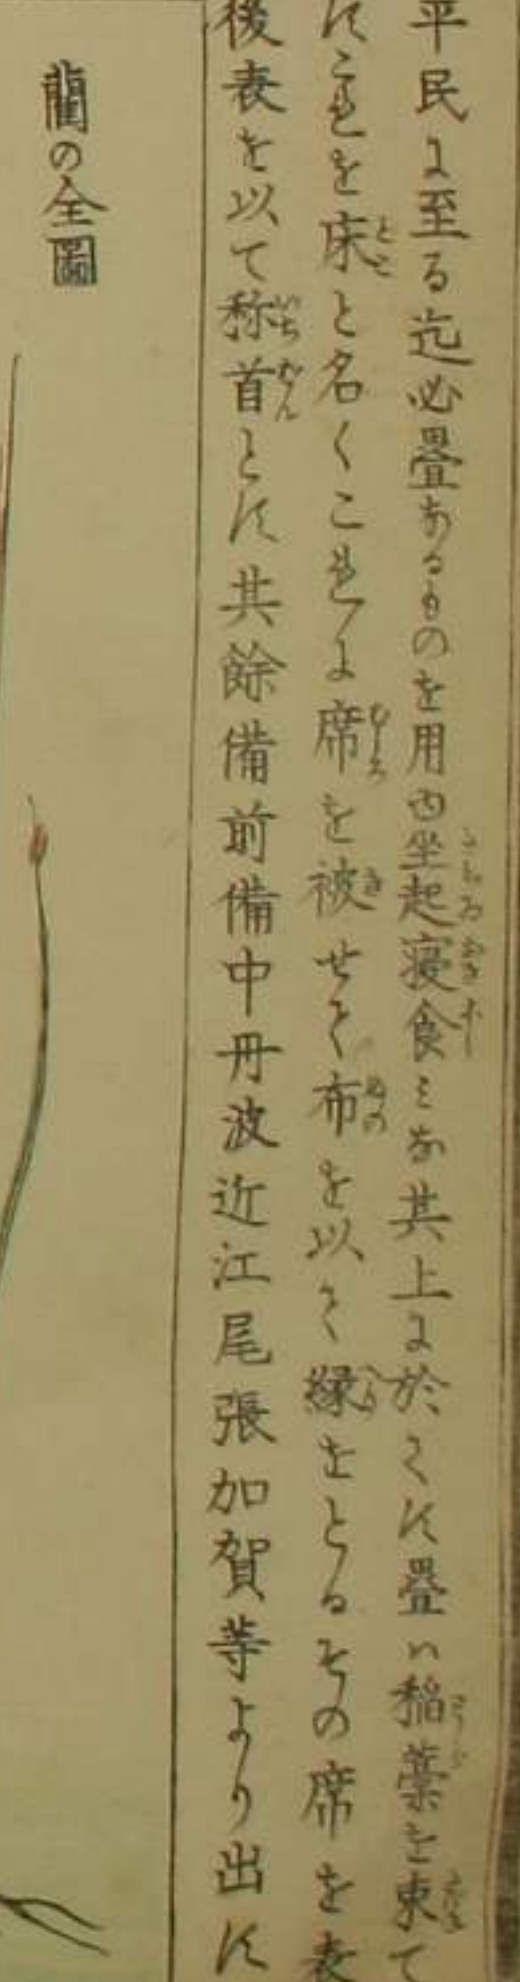 平民に至る迄必畳あるものを用ゆ坐起寝食みな其上に於てす畳ハ稲藁を束て
これを床と名くこれに席を被せて布を以て縁をとるその席を表
後表を以て称首とす其餘備前備中丹波近江尾張加賀等より出す
藺の全圖